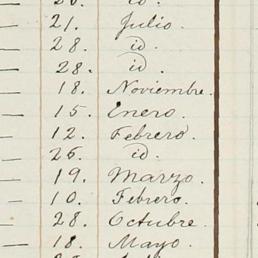 id.
21. Julio.
28. id.
28. id.
18. Noviembre.
15. Enero.
12. Febrero.
26. id.
19. Marzo.
10. Febrero.
28. Octubre.
18. Mayo.